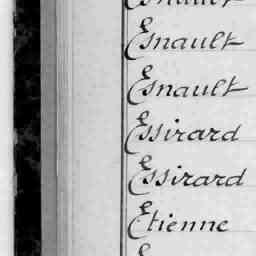 Esnault
Esnault
Essirard
Essirard
Etienne